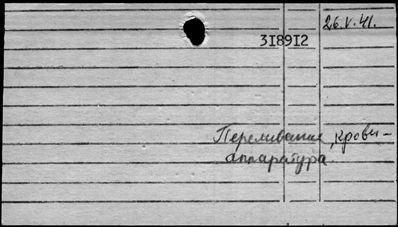 26.V.41.
318912
Переливание крови -
аппаратура